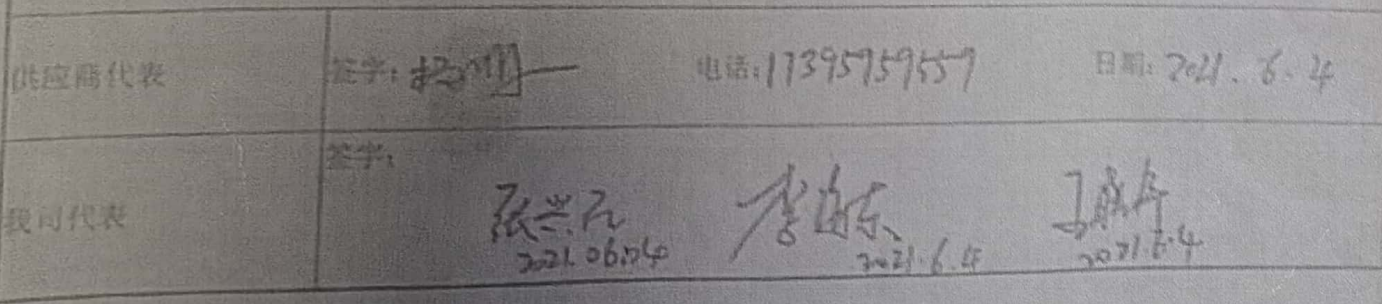 供应商代表 签字: 电话:17395759557 日期: 2021.6.4
签字:
我司代表
张兴元 李 东 王
2021.06.04 2021.6.4 2021.6.4